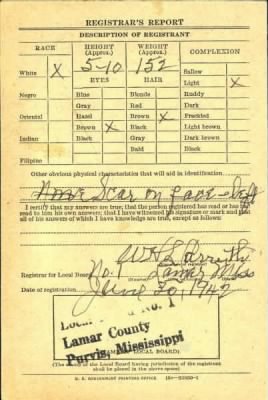 REGISTRAR'S REPORT
DESCRIPTION OF REGISTRANT
RACE HEIGHT (Approx.) WEIGHT (Approx.) COMPLEXION
White X 5-10 152 Sallow
EYES HAIR Light X
Negro Blue Blonde Ruddy
Gray Red Dark
Oriental Hazel Brown X Freckled
Brown X Black Light brown
Indian Black Gray Dark brown
Bald Black
Filipino
Other obvious physical characteristics that will aid in identification
None Scar on face - left
I certify that my answers are true; that the person registered has read or has had
read to him his own answers; that I have witnessed his signature or mark and that
all of his answers of which I have knowledge are true, except as follows:
Registrar for Local Board No. 1 Lamar Miss
Date of registration June 30, 1942
Local Board No. 1
Lamar County
Purvis, Mississippi
(STAMP OF LOCAL BOARD)
(The stamp of the Local Board having jurisdiction of the registrant
shall be placed in the above space.)
U. S. GOVERNMENT PRINTING OFFICE